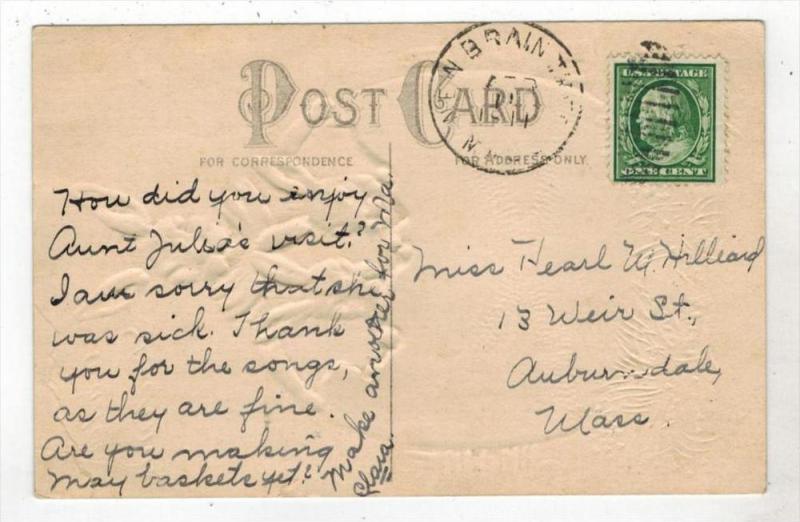 POST CARD
FOR CORRESPONDENCE
FOR ADDRESS ONLY
BRAIN
U.S. POSTAGE
ONE CENT
How did you enjoy
Aunt Julia's visit?
I am sorry that she
was sick. Thank
you for the songs,
as they are fine.
Are you making
May baskets yet?
Make another for Ma.
Clara.
Miss Pearl M. Hilliard
13 Weir St.,
Auburndale,
Mass.